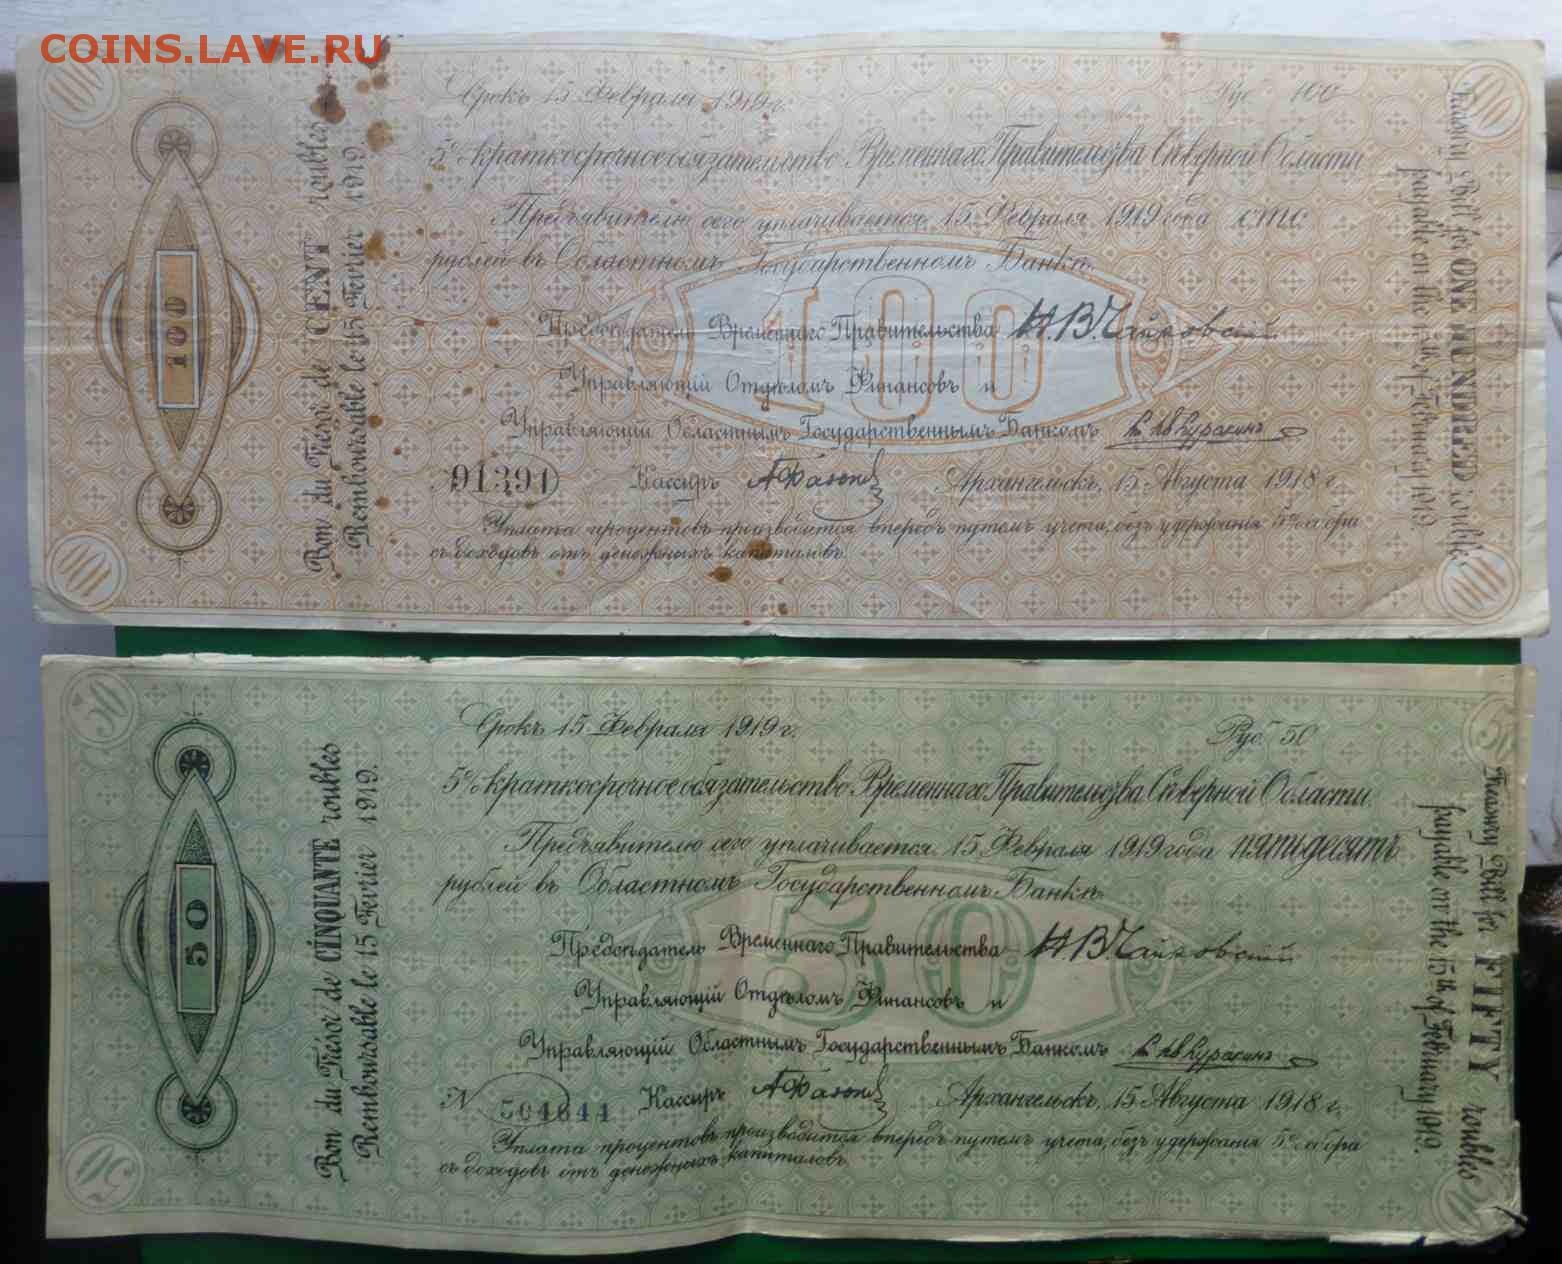 COINS.LAVE.RU
100
100
Bon du Trésor de CENT roubles
Remboursable le 15 Fevrier 1919.
Срокъ 15 Февраля 1919 г.
Руб. 100
5% краткосрочное обязательство Временнаго Правительства Сѣверной Области
Предъявителю сего уплачивается 15 Февраля 1919 года сто
рублей въ Областномъ Государственномъ Банкѣ.
100
Предсѣдатель Временнаго Правительства Н.В.Чайковский
Управляющій Отдѣломъ Финансовъ и
Управляющій Областнымъ Государственнымъ Банкомъ
91391 Кассиръ
Архангельскъ, 15 Августа 1918 г.
Уплата процентовъ производится впередъ путемъ учета, безъ удержанія 5% сбора
съ доходовъ отъ денежныхъ капиталовъ.
100
100
100
Treasury Bill for ONE HUNDRED roubles
payable on the 15th of February 1919.
50
50
Bon du Trésor de CINQUANTE roubles
Remboursable le 15 Fevrier 1919.
Срокъ 15 Февраля 1919 г.
Руб. 50
5% краткосрочное обязательство Временнаго Правительства Сѣверной Области
Предъявителю сего уплачивается 15 Февраля 1919 года пятьдесятъ
рублей въ Областномъ Государственномъ Банкѣ.
50
Предсѣдатель Временнаго Правительства Н.В.Чайковский
Управляющій Отдѣломъ Финансовъ и
Управляющій Областнымъ Государственнымъ Банкомъ
N 504644 Кассиръ
Архангельскъ, 15 Августа 1918 г.
Уплата процентовъ производится впередъ путемъ учета, безъ удержанія 5% сбора
съ доходовъ отъ денежныхъ капиталовъ.
50
50
Treasury Bill for FIFTY roubles
payable on the 15th of February 1919.